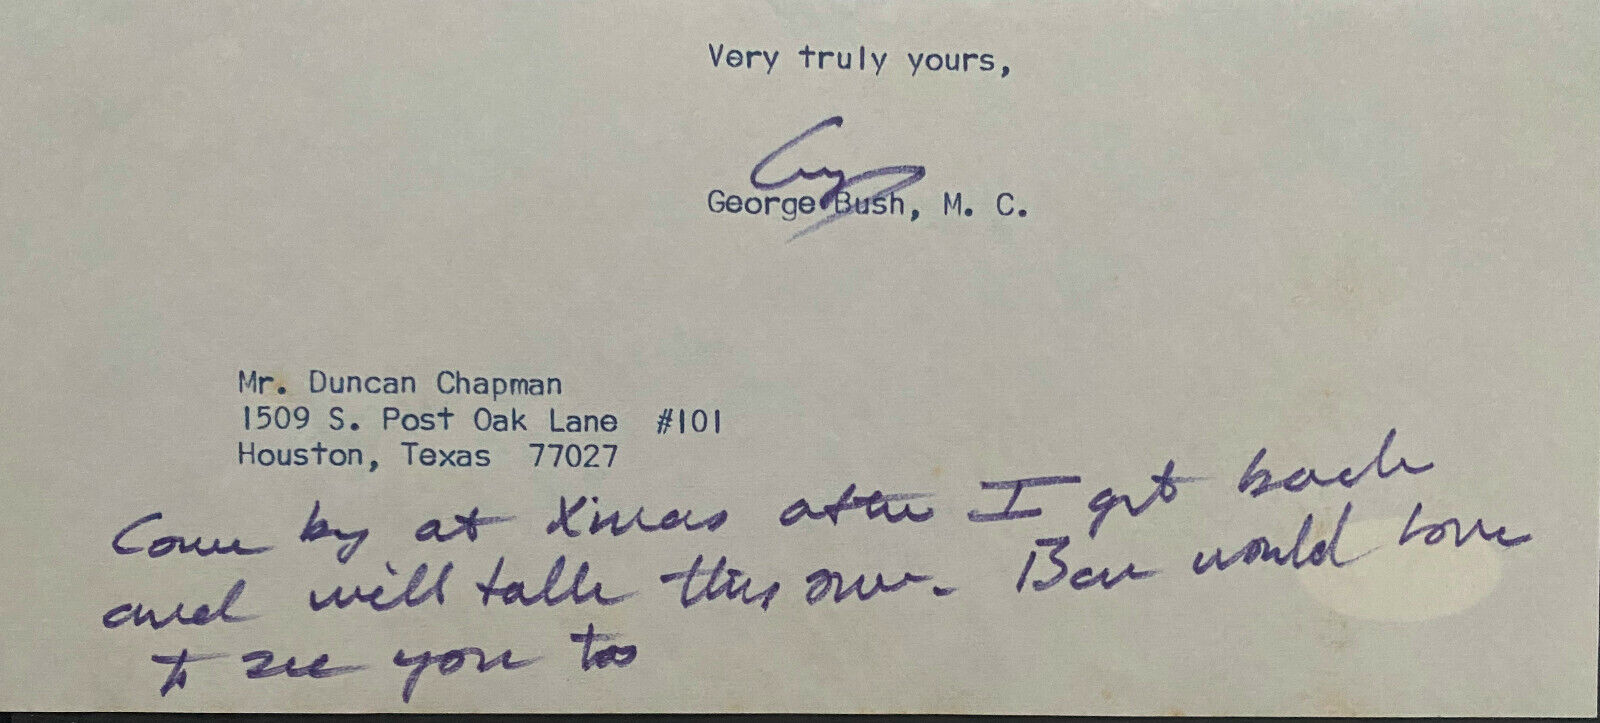 Very truly yours,
George Bush, M. C.
Mr. Duncan Chapman
1509 S. Post Oak Lane #101
Houston, Texas 77027
Come by at Xmas after I get back
and will talk this over. Bar would love
to see you too